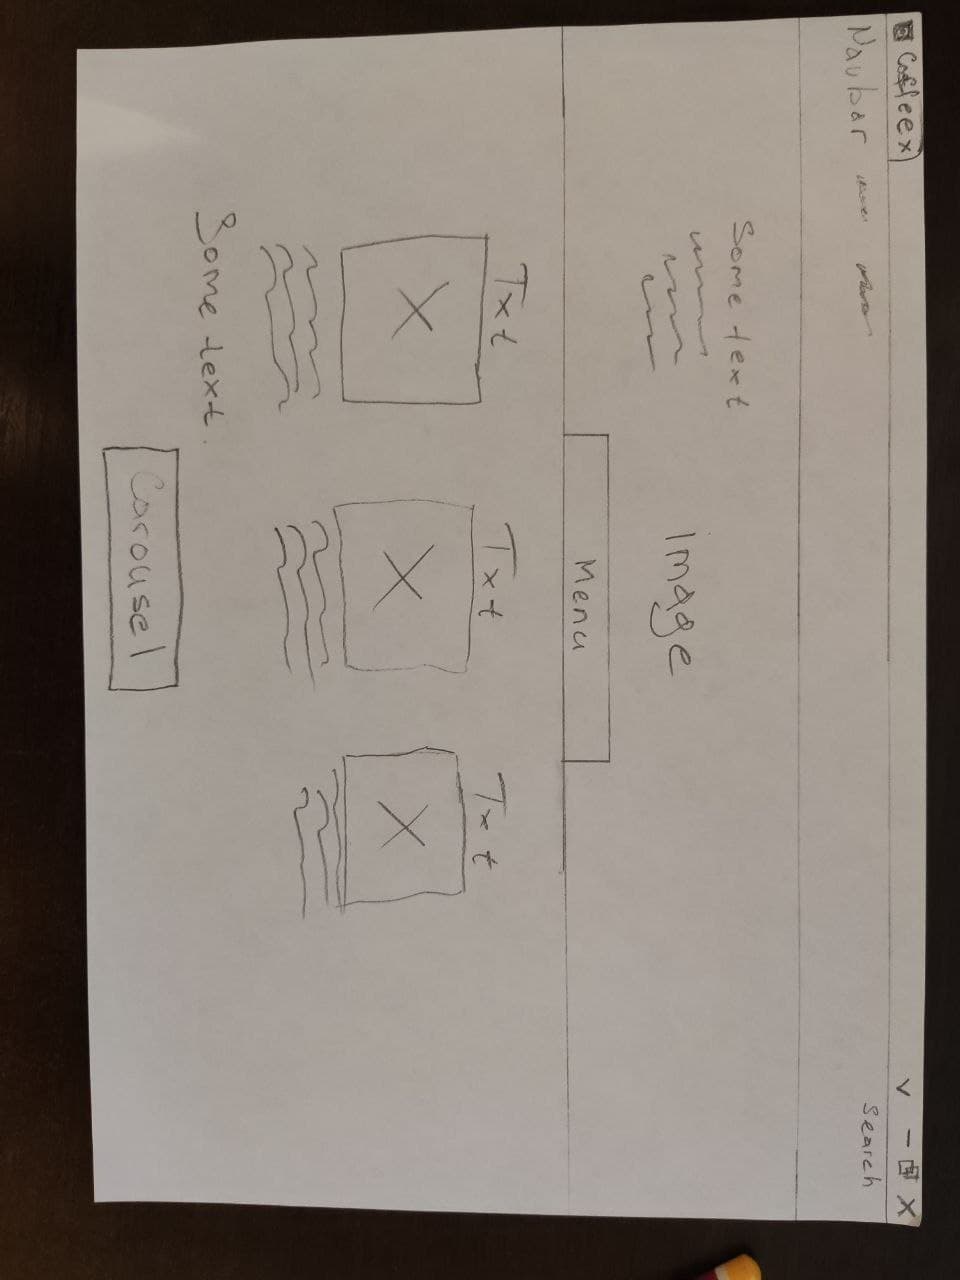 Coffee x
v - x
Navbar
Search
Some text
Image
Menu
Txt Txt Txt
X X X
Some text.
Carousel